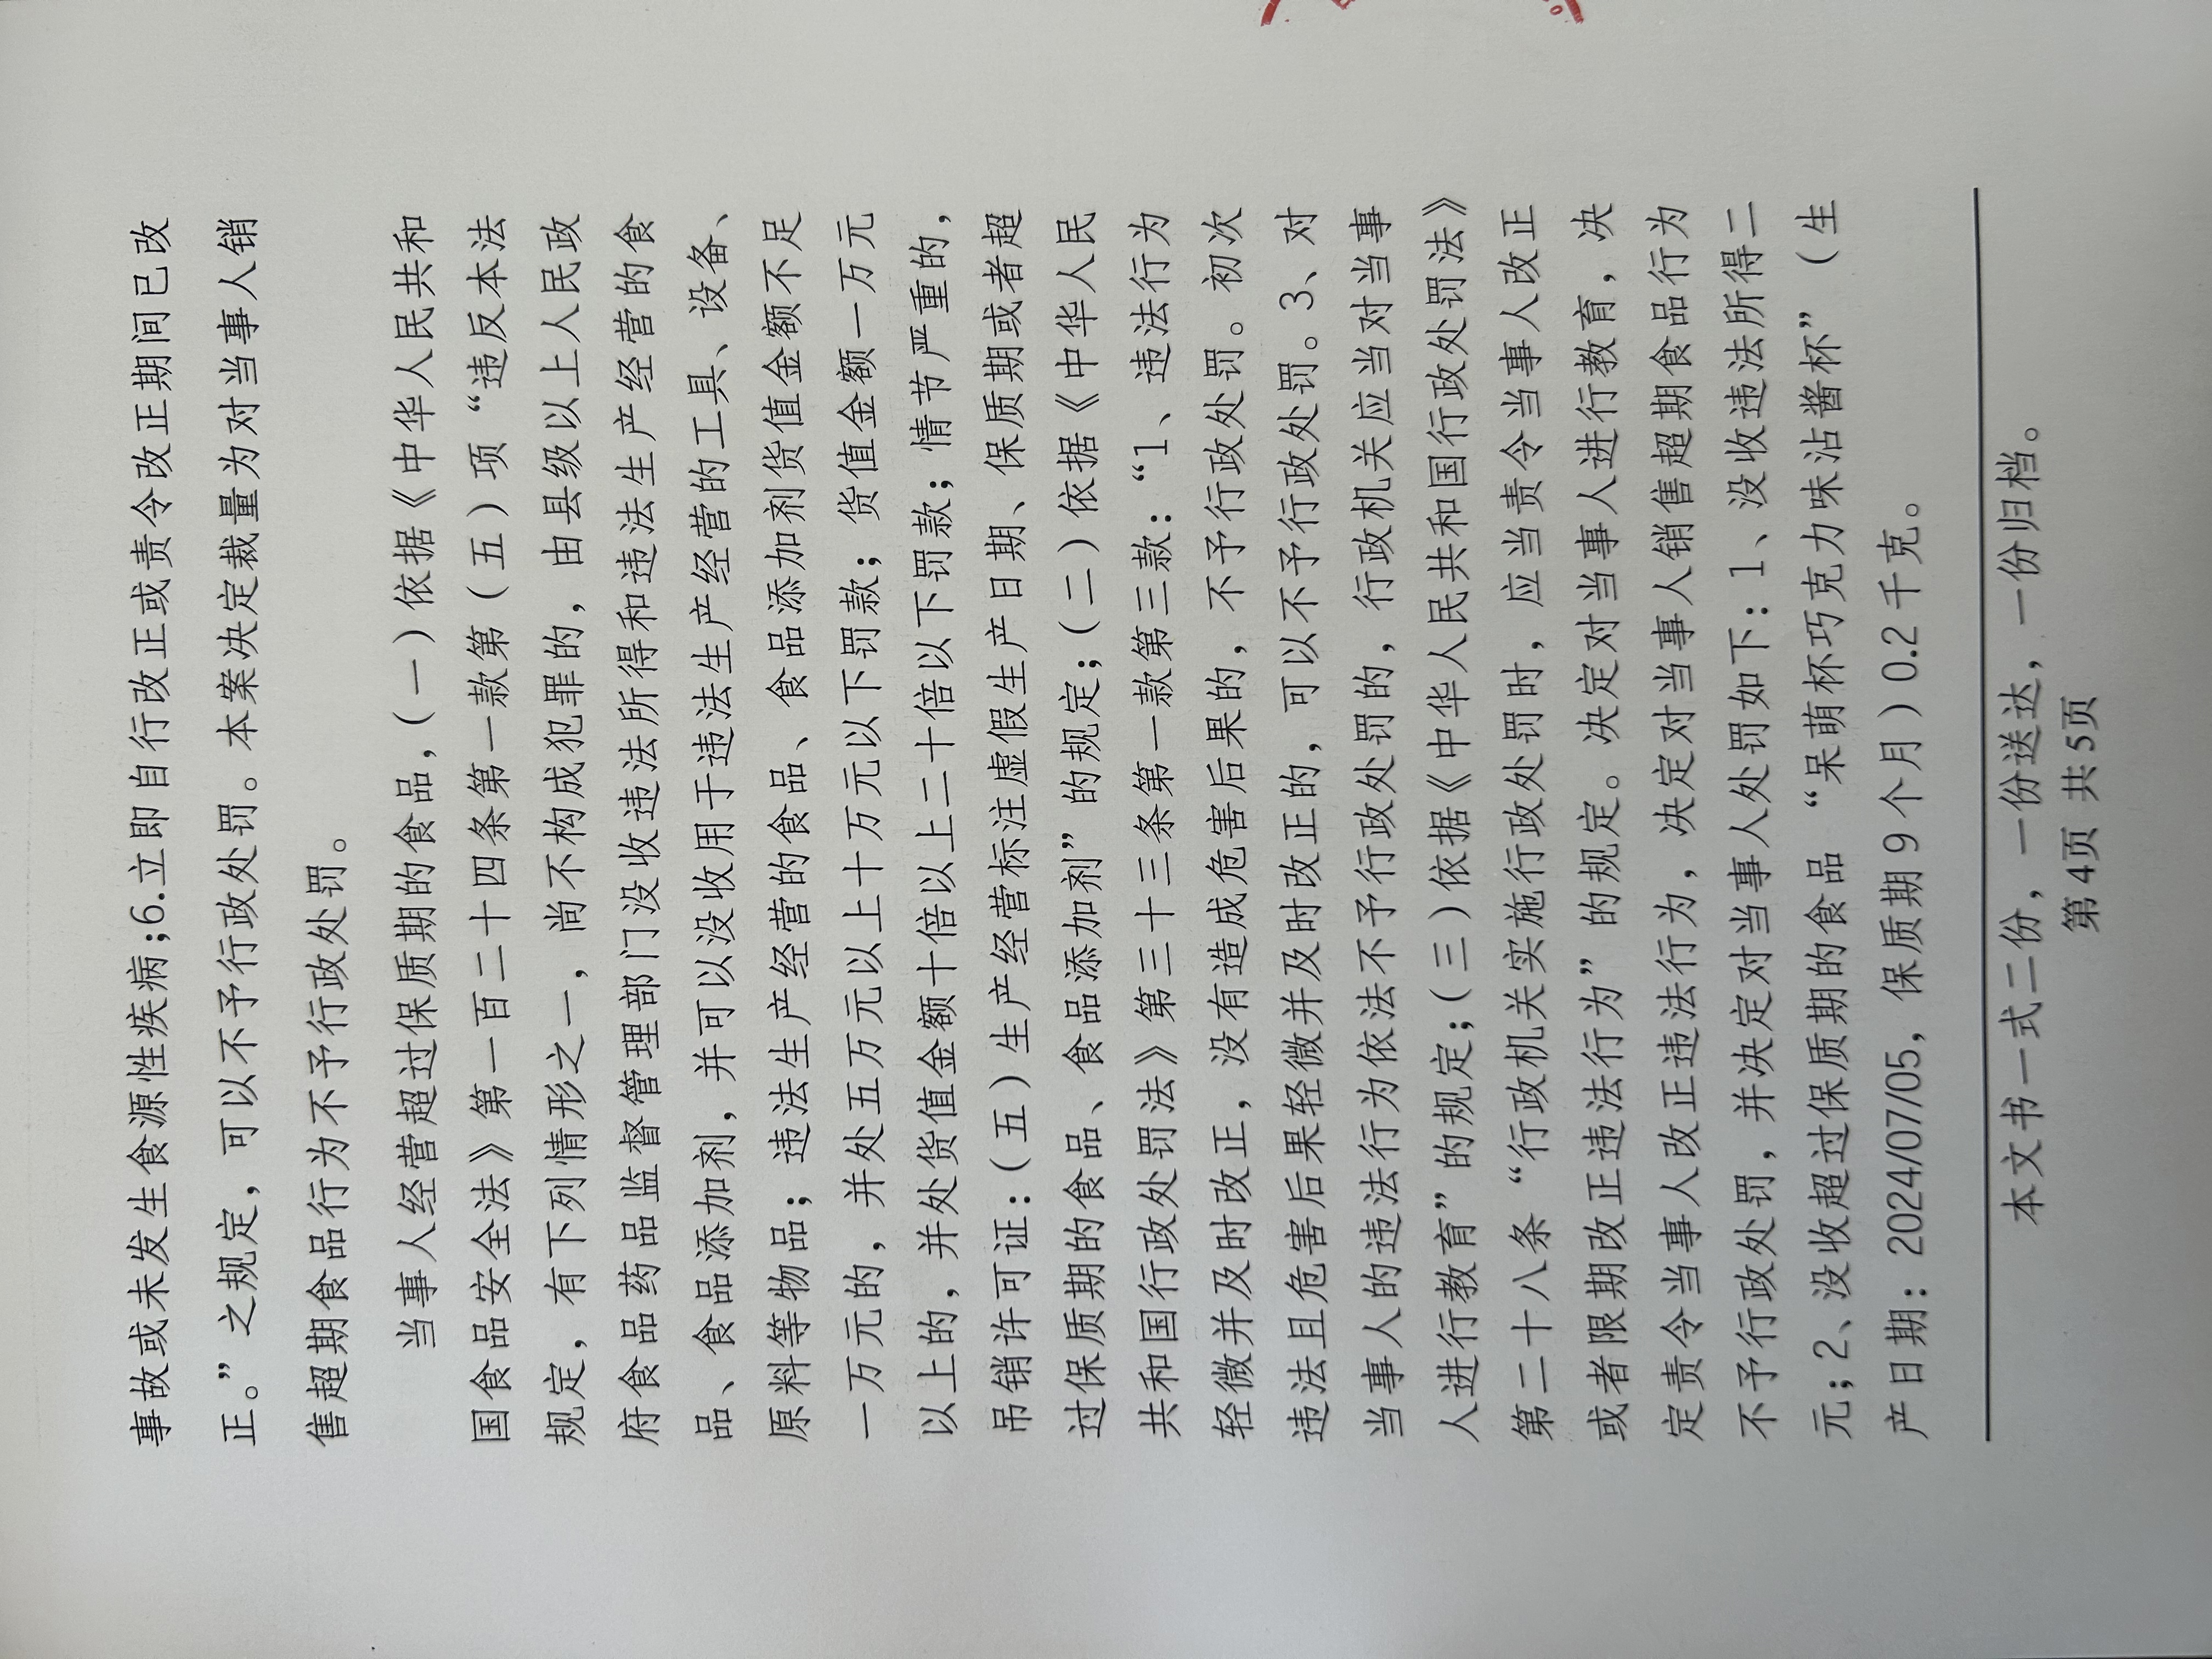 事故或未发生食源性疾病;6.立即自行改正或责令改正期间已改
正。”之规定，可以不予行政处罚。本案决定裁量为对当事人销
售超期食品行为不予行政处罚。
当事人经营超过保质期的食品,(一)依据《中华人民共和
国食品安全法》第一百二十四条第一款第(五)项“违反本法
规定，有下列情形之一，尚不构成犯罪的，由县级以上人民政
府食品药品监督管理部门没收违法所得和违法生产经营的食
品、食品添加剂，并可以没收用于违法生产经营的工具、设备、
原料等物品；违法生产经营的食品、食品添加剂货值金额不足
一万元的，并处五万元以上十万元以下罚款；货值金额一万元
以上的，并处货值金额十倍以上二十倍以下罚款；情节严重的，
吊销许可证:(五)生产经营标注虚假生产日期、保质期或者超
过保质期的食品、食品添加剂”的规定;(二)依据《中华人民
共和国行政处罚法》第三十三条第一款第三款:“1、违法行为
轻微并及时改正，没有造成危害后果的，不予行政处罚。初次
违法且危害后果轻微并及时改正的，可以不予行政处罚。3、对
当事人的违法行为依法不予行政处罚的，行政机关应当对当事
人进行教育”的规定;(三)依据《中华人民共和国行政处罚法》
第二十八条“行政机关实施行政处罚时，应当责令当事人改正
或者限期改正违法行为”的规定。决定对当事人进行教育，决
定责令当事人改正违法行为，决定对当事人销售超期食品行为
不予行政处罚，并决定对当事人处罚如下:1、没收违法所得二
元;2、没收超过保质期的食品“呆萌杯巧克力味沾酱杯”(生
产日期:2024/07/05，保质期9个月)0.2千克。
本文书一式二份，一份送达，一份归档。
第4页 共5页